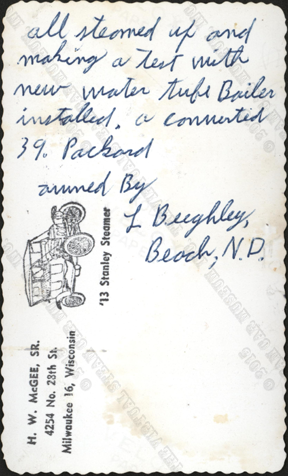 all steamed up and
making a test with
new water tube Boiler
installed. a converted
39. Packard
owned By
L Beeghley,
Beach, N.D.
'13 Stanley Steamer
H. W. McGEE, SR.
4254 No. 28th St.
Milwaukee 16, Wisconsin